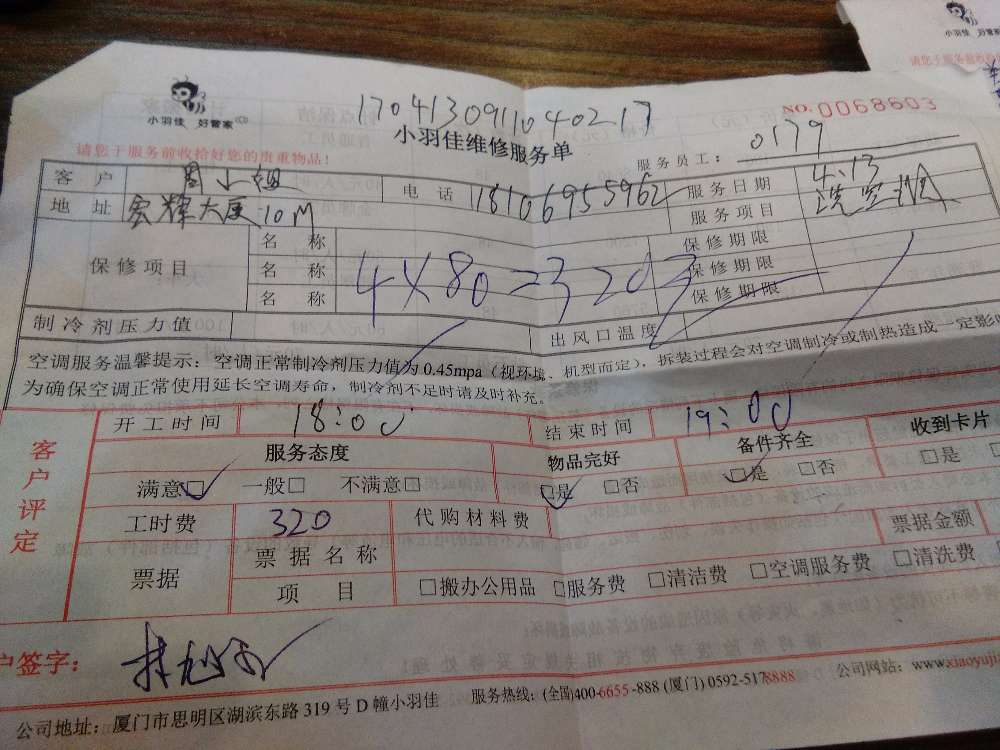 小羽佳 好管家
请您于服务前收
小羽佳 好管家
1704130911040217
NO.0068603
小羽佳维修服务单
请您于服务前收拾好您的贵重物品!
服务员工: 0179
客户 周小姐 电话 18106955962 服务日期 4.13
地址 宏辉大厦10M 服务项目 洗空调
保修项目 名称 保修期限
名称 4×80=320 保修期限
名称 保修期限
制冷剂压力值 出风口温度
空调服务温馨提示:空调正常制冷剂压力值为0.45mpa(视环境、机型而定),拆装过程会对空调制冷或制热造成一定影
为确保空调正常使用延长空调寿命,制冷剂不足时请及时补充。
客户评定
开工时间 18:00 结束时间 19:00
服务态度 物品完好 备件齐全 收到卡片
满意☑ 一般□ 不满意□ ☑是 □否 ☑是 □否 □是
工时费 320 代购材料费 票据金额
票据 票据名称
项目 □搬办公用品 □服务费 □清洁费 □空调服务费 □清洗费
户签字:
公司地址:厦门市思明区湖滨东路319号D幢小羽佳 服务热线:(全国)400-6655-888 (厦门) 0592-5178888 公司网站:www.xiaoyujia